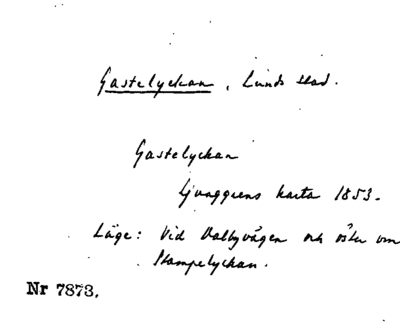 Gastelyckan, Lunds stad.
Gastelyckan
Ljunggrens karta 1853.
Läge: Vid Dalbyvägen och öster om
Stampelyckan.
Nr 7873.